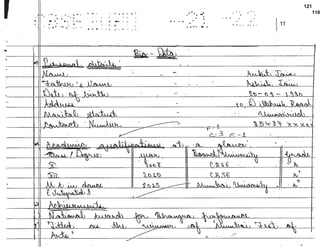 121
118
11
Bio - Data
Personal details
Name - Ankit Jain
Father's Name - Ashish Jain
Date of birth - 10-09-1990
Address - 10, D Road
Marital status - Unmarried
Contact Number - 85437 xxxxx
Academic qualifications at a glance
Class / Degree year Board/University grade
X 2008 CBSE A
XII 2010 CBSE A+
M A in dance 2015 Mumbai University A+
(Integrated)
Achievements
National Awards for Bhangra
Titled as the winner of Mumbai Fest of
Arts'